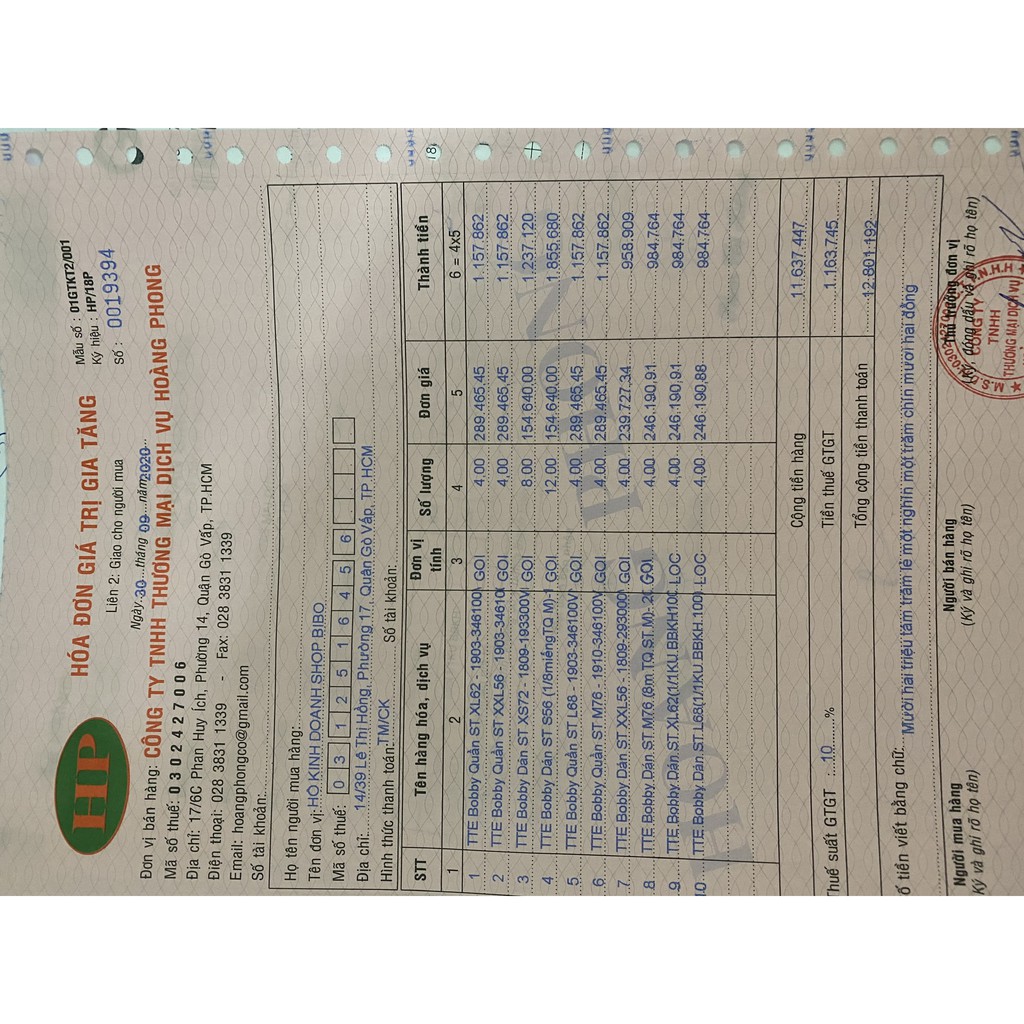 HP
HÓA ĐƠN GIÁ TRỊ GIA TĂNG
Liên 2: Giao cho người mua
Ngày 30 tháng 09 năm 2020
Mẫu số : 01GTKT2/001
Ký hiệu : HP/18P
Số : 0019394
Đơn vị bán hàng: CÔNG TY TNHH THƯƠNG MẠI DỊCH VỤ HOÀNG PHONG
Mã số thuế: 0 3 0 2 4 2 7 0 0 6
Địa chỉ: 177/6C Phan Huy Ích, Phường 14, Quận Gò Vấp, TP.HCM
Điện thoại: 028 3831 1339 - Fax: 028 3831 1339
Email: hoangphongco@gmail.com
Số tài khoản:
Họ tên người mua hàng:
Tên đơn vị: HỘ KINH DOANH SHOP BIBO
Mã số thuế: 0 3 1 2 5 1 6 4 5 6
Địa chỉ: 14/39 Lê Thị Hồng, Phường 17, Quận Gò Vấp, TP HCM
Hình thức thanh toán: TM/CK Số tài khoản:
STT Tên hàng hóa, dịch vụ Đơn vị tính Số lượng Đơn giá Thành tiền
1 2 3 4 5 6 = 4x5
1 TTE Bobby Quần ST XL62 - 1903-346100V GOI 4,00 289.465,45 1.157.862
2 TTE Bobby Quần ST XXL56 - 1903-34610 GOI 4,00 289.465,45 1.157.862
3 TTE Bobby Dán ST XS72 - 1809-193300V GOI 8,00 154.640,00 1.237.120
4 TTE Bobby Dán ST S56 (1/8miếngTQ M)-1 GOI 12,00 154.640,00 1.855.680
5 TTE Bobby Quần ST L68 - 1903-346100V GOI 4,00 289.465,45 1.157.862
6 TTE Bobby Quần ST M76 - 1910-346100V GOI 4,00 289.465,45 1.157.862
7 TTE Bobby Dán ST XXL56 - 1809-293000 GOI 4,00 239.727,34 958.909
8 TTE Bobby Dán ST M76 (8m TQ ST M)- 2 GOI 4,00 246.190,91 984.764
9 TTE Bobby Dán ST XL62(1/1KU.BBKH100 LOC 4,00 246.190,91 984.764
10 TTE Bobby Dán ST L68(1/1KU.BBKH.100 LOC 4,00 246.190,88 984.764
HOÀNG PHONG
Cộng tiền hàng 11.637.447
Thuế suất GTGT : 10 % Tiền thuế GTGT 1.163.745
Tổng cộng tiền thanh toán 12.801.192
ố tiền viết bằng chữ: Mười hai triệu tám trăm lẻ một nghìn một trăm chín mươi hai đồng
Người mua hàng Người bán hàng Thủ trưởng đơn vị
Ký và ghi rõ họ tên) (Ký và ghi rõ họ tên) (Ký, đóng dấu và ghi rõ họ tên)
CÔNG TY
TNHH
THƯƠNG MẠI DỊCH VỤ